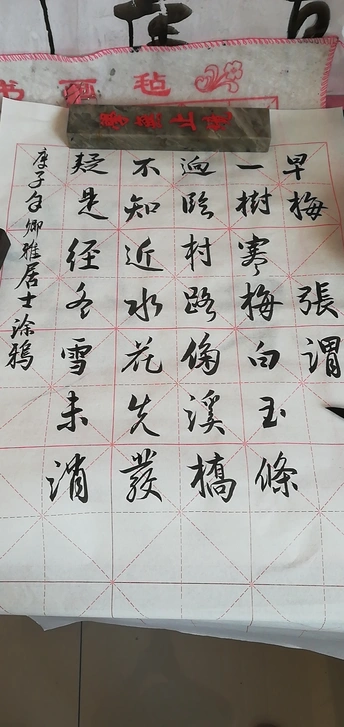 书画毡
學無止境
早梅 張謂
一樹寒梅白玉條
逈臨村路傍溪橋
不知近水花先發
疑是経冬雪未消
庚子 卿雅居士涂鴉